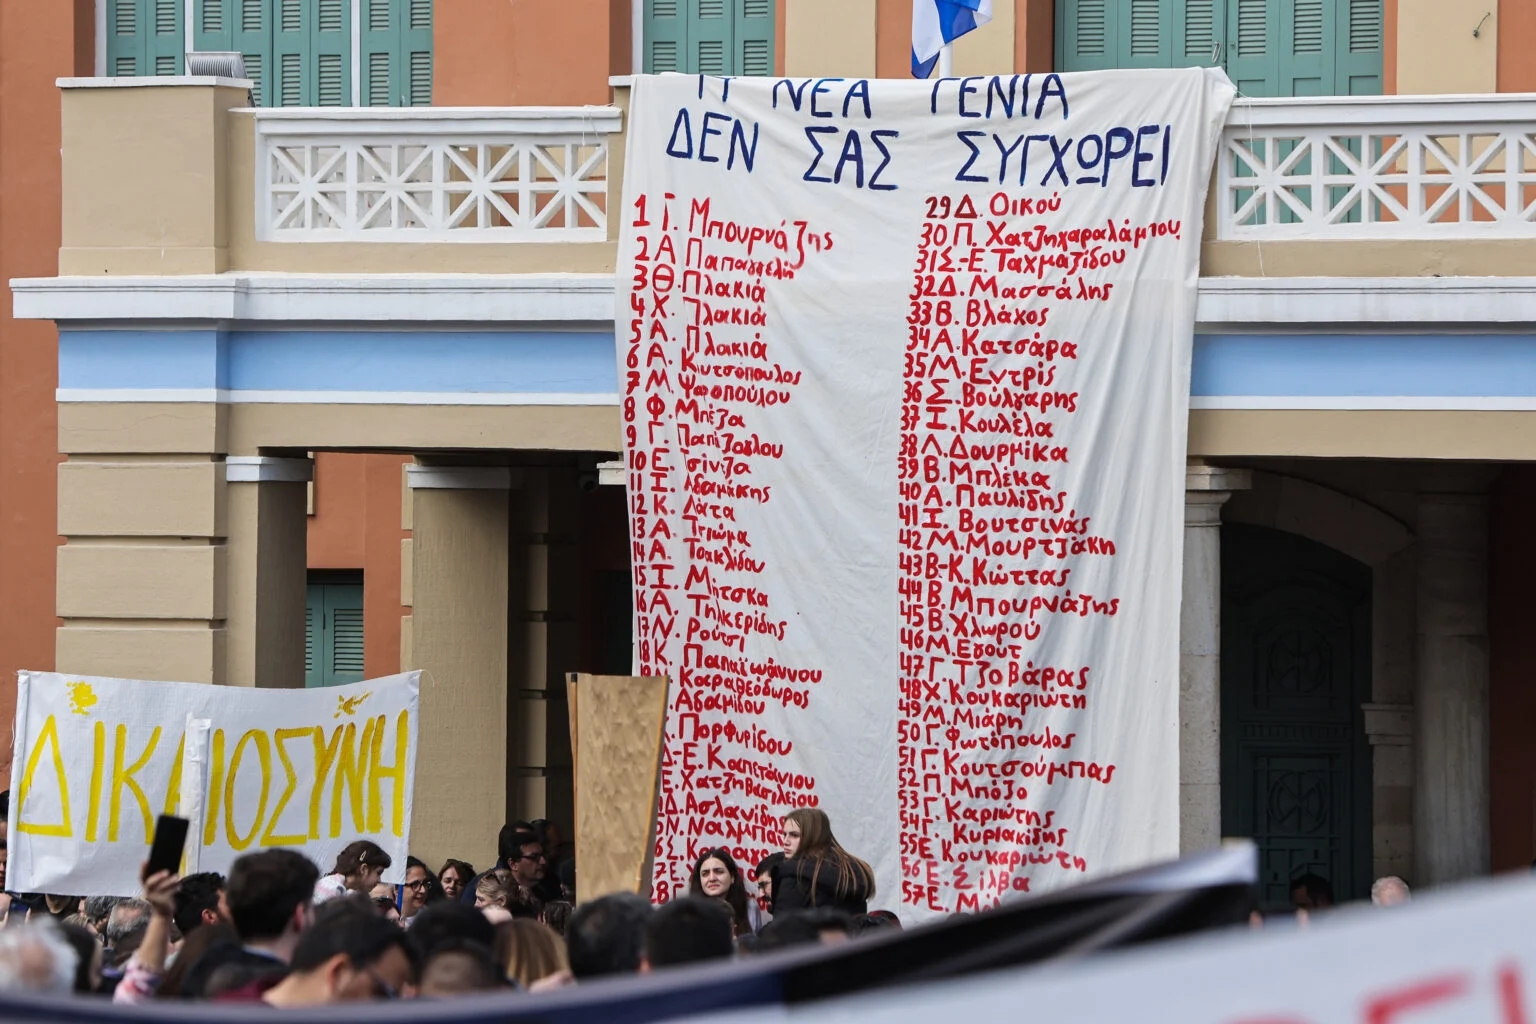 Η ΝΕΑ ΓΕΝΙΑ
ΔΕΝ ΣΑΣ ΣΥΓΧΩΡΕΙ
1 Γ. Μπουρνάζης
2 Α Παπαγγελή
3 Θ. Πλακιά
4 Χ. Πλακιά
5 Α. Πλακιά
6 Α. Κουτσόπουλος
7 Μ. Ψαροπούλου
8 Φ. Μπέζα
9 Γ. Παπάζογλου
10 Ε. Τσίντζα
11 Ι. Αδαμάκης
12 Κ. Λάτα
13 Α.
14 Α. Τσακλίδου
15 Ι. Μήτσκα
16 Α. Τηλκερίδης
17 Ν. Ρούτσι
18 Κ. Παπαϊωάννου
Καραθεόδωρος
Αδαμίδου
Πορφυρίδου
-Ε. Καπετάνιου
Ε. Χατζηβασιλείου
Δ. Ασλανίδης
Ν. Ναλμπά
Σ.
29 Δ. Οικού
30 Π. Χατζηχαραλάμπου
31 Σ.-Ε. Ταχμαζίδου
32 Δ. Μασσάλης
33 Β. Βλάχος
34 Α. Κατσάρα
35 Μ. Εντρίς
36 Σ. Βούλγαρης
37 Ι. Κουλέλα
38 Λ. Δουρμίκα
39 Β. Μπλέκα
40 Α. Παυλίδης
41 Ι. Βουτσινάς
42 Μ. Μουρτζάκη
43 Β-Κ. Κώττας
44 Β. Μπουρνάζης
45 Β. Χλωρού
46 Μ. Εγούτ
47 Γ. Τζοβάρας
48 Χ. Κουκαριώτη
49 Μ. Μιάρη
50 Γ. Φωτόπουλος
51 Γ. Κουτσούμπας
52 Π. Μπόζο
53 Γ. Καριώτης
54 Γ. Κυριακίδης
55 Ε. Κουκαριώτη
56 Ε. Σίλβα
57 Ε.
ΔΙΚΑΙΟΣΥΝΗ